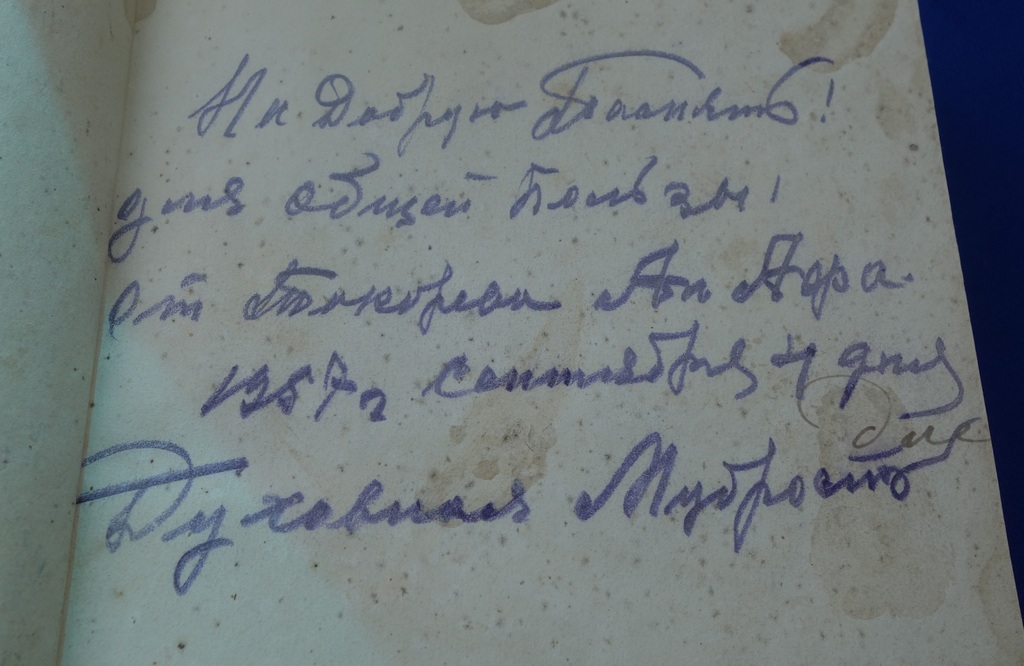 На Добрую Память!
для общей Пользы!
от Токорева Ан Афа.
1957 г сентября 4 дня
Духовная Мудрость